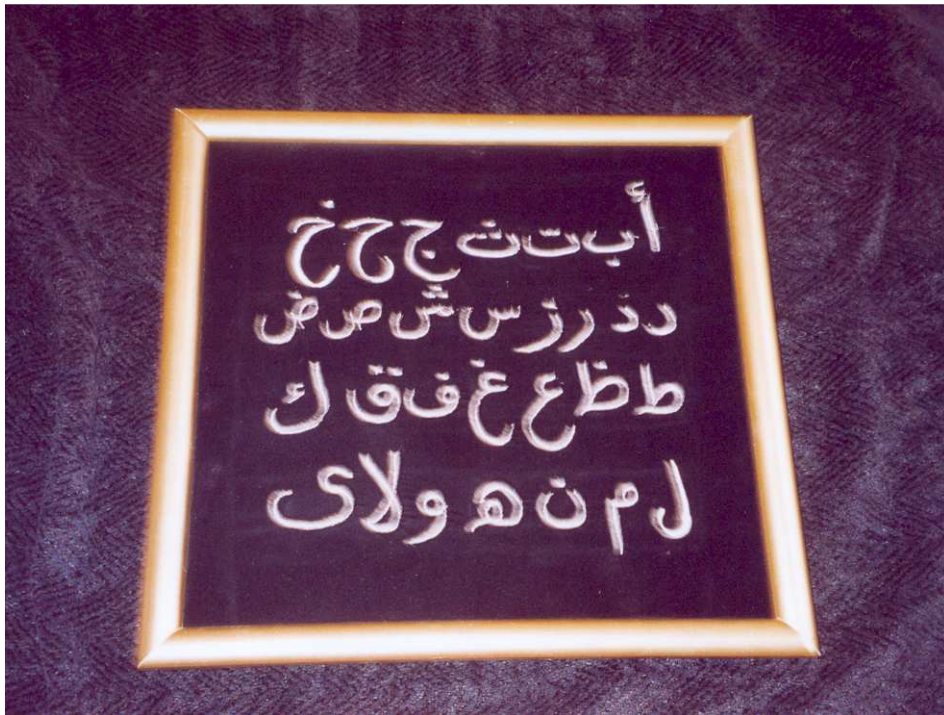 أ ب ت ث ج ح خ
د ذ ر ز س ش ص ض
ط ظ ع غ ف ق ك
ل م ن ه و لا ى